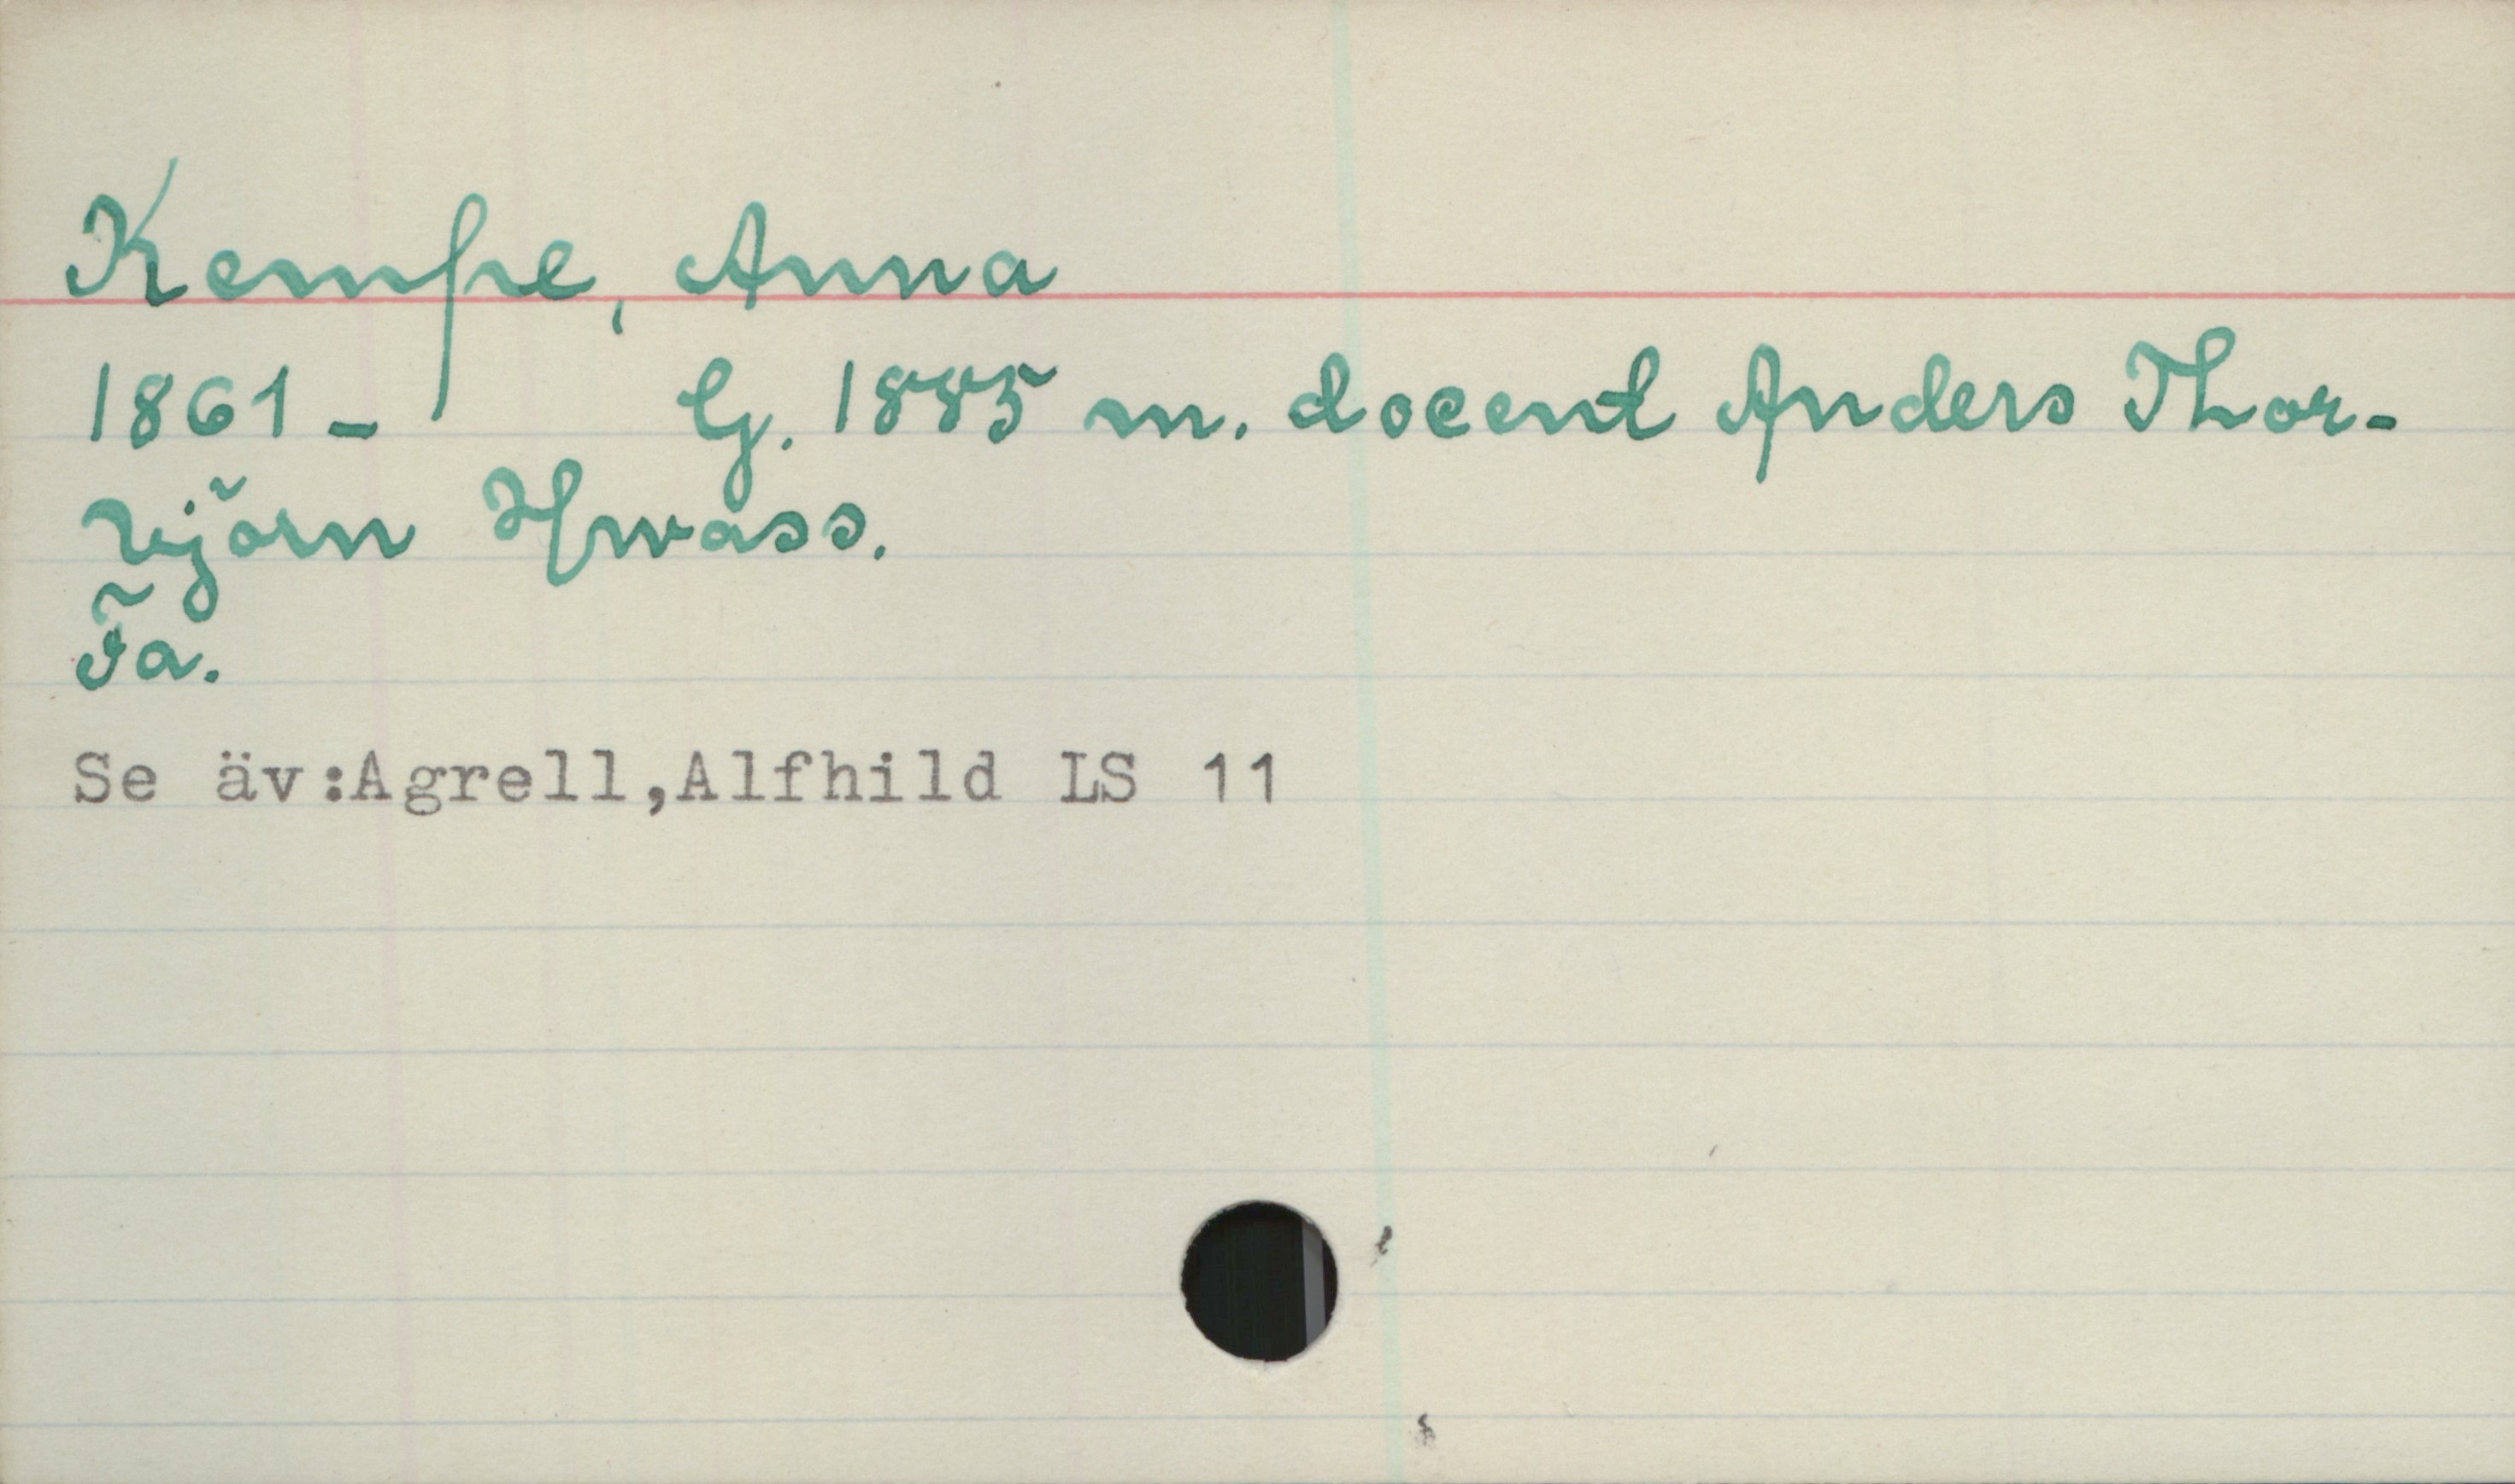 Kempe, Anna
1861- G. 1885 m. docent Anders Thor-
björn Hwass.
Fa.
Se äv:Agrell,Alfhild LS 11